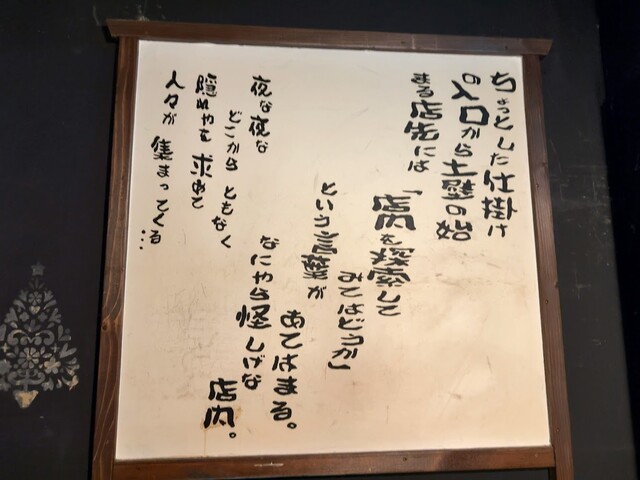 ちょっとした仕掛け
の入口から土壁の始
まる店先には
「店内を探索して
みてはどうか」
という言葉が
あてはまる。
なにやら怪しげな
店内。
夜な夜な
どこからともなく
隠れやを求めて
人々が集まってくる…